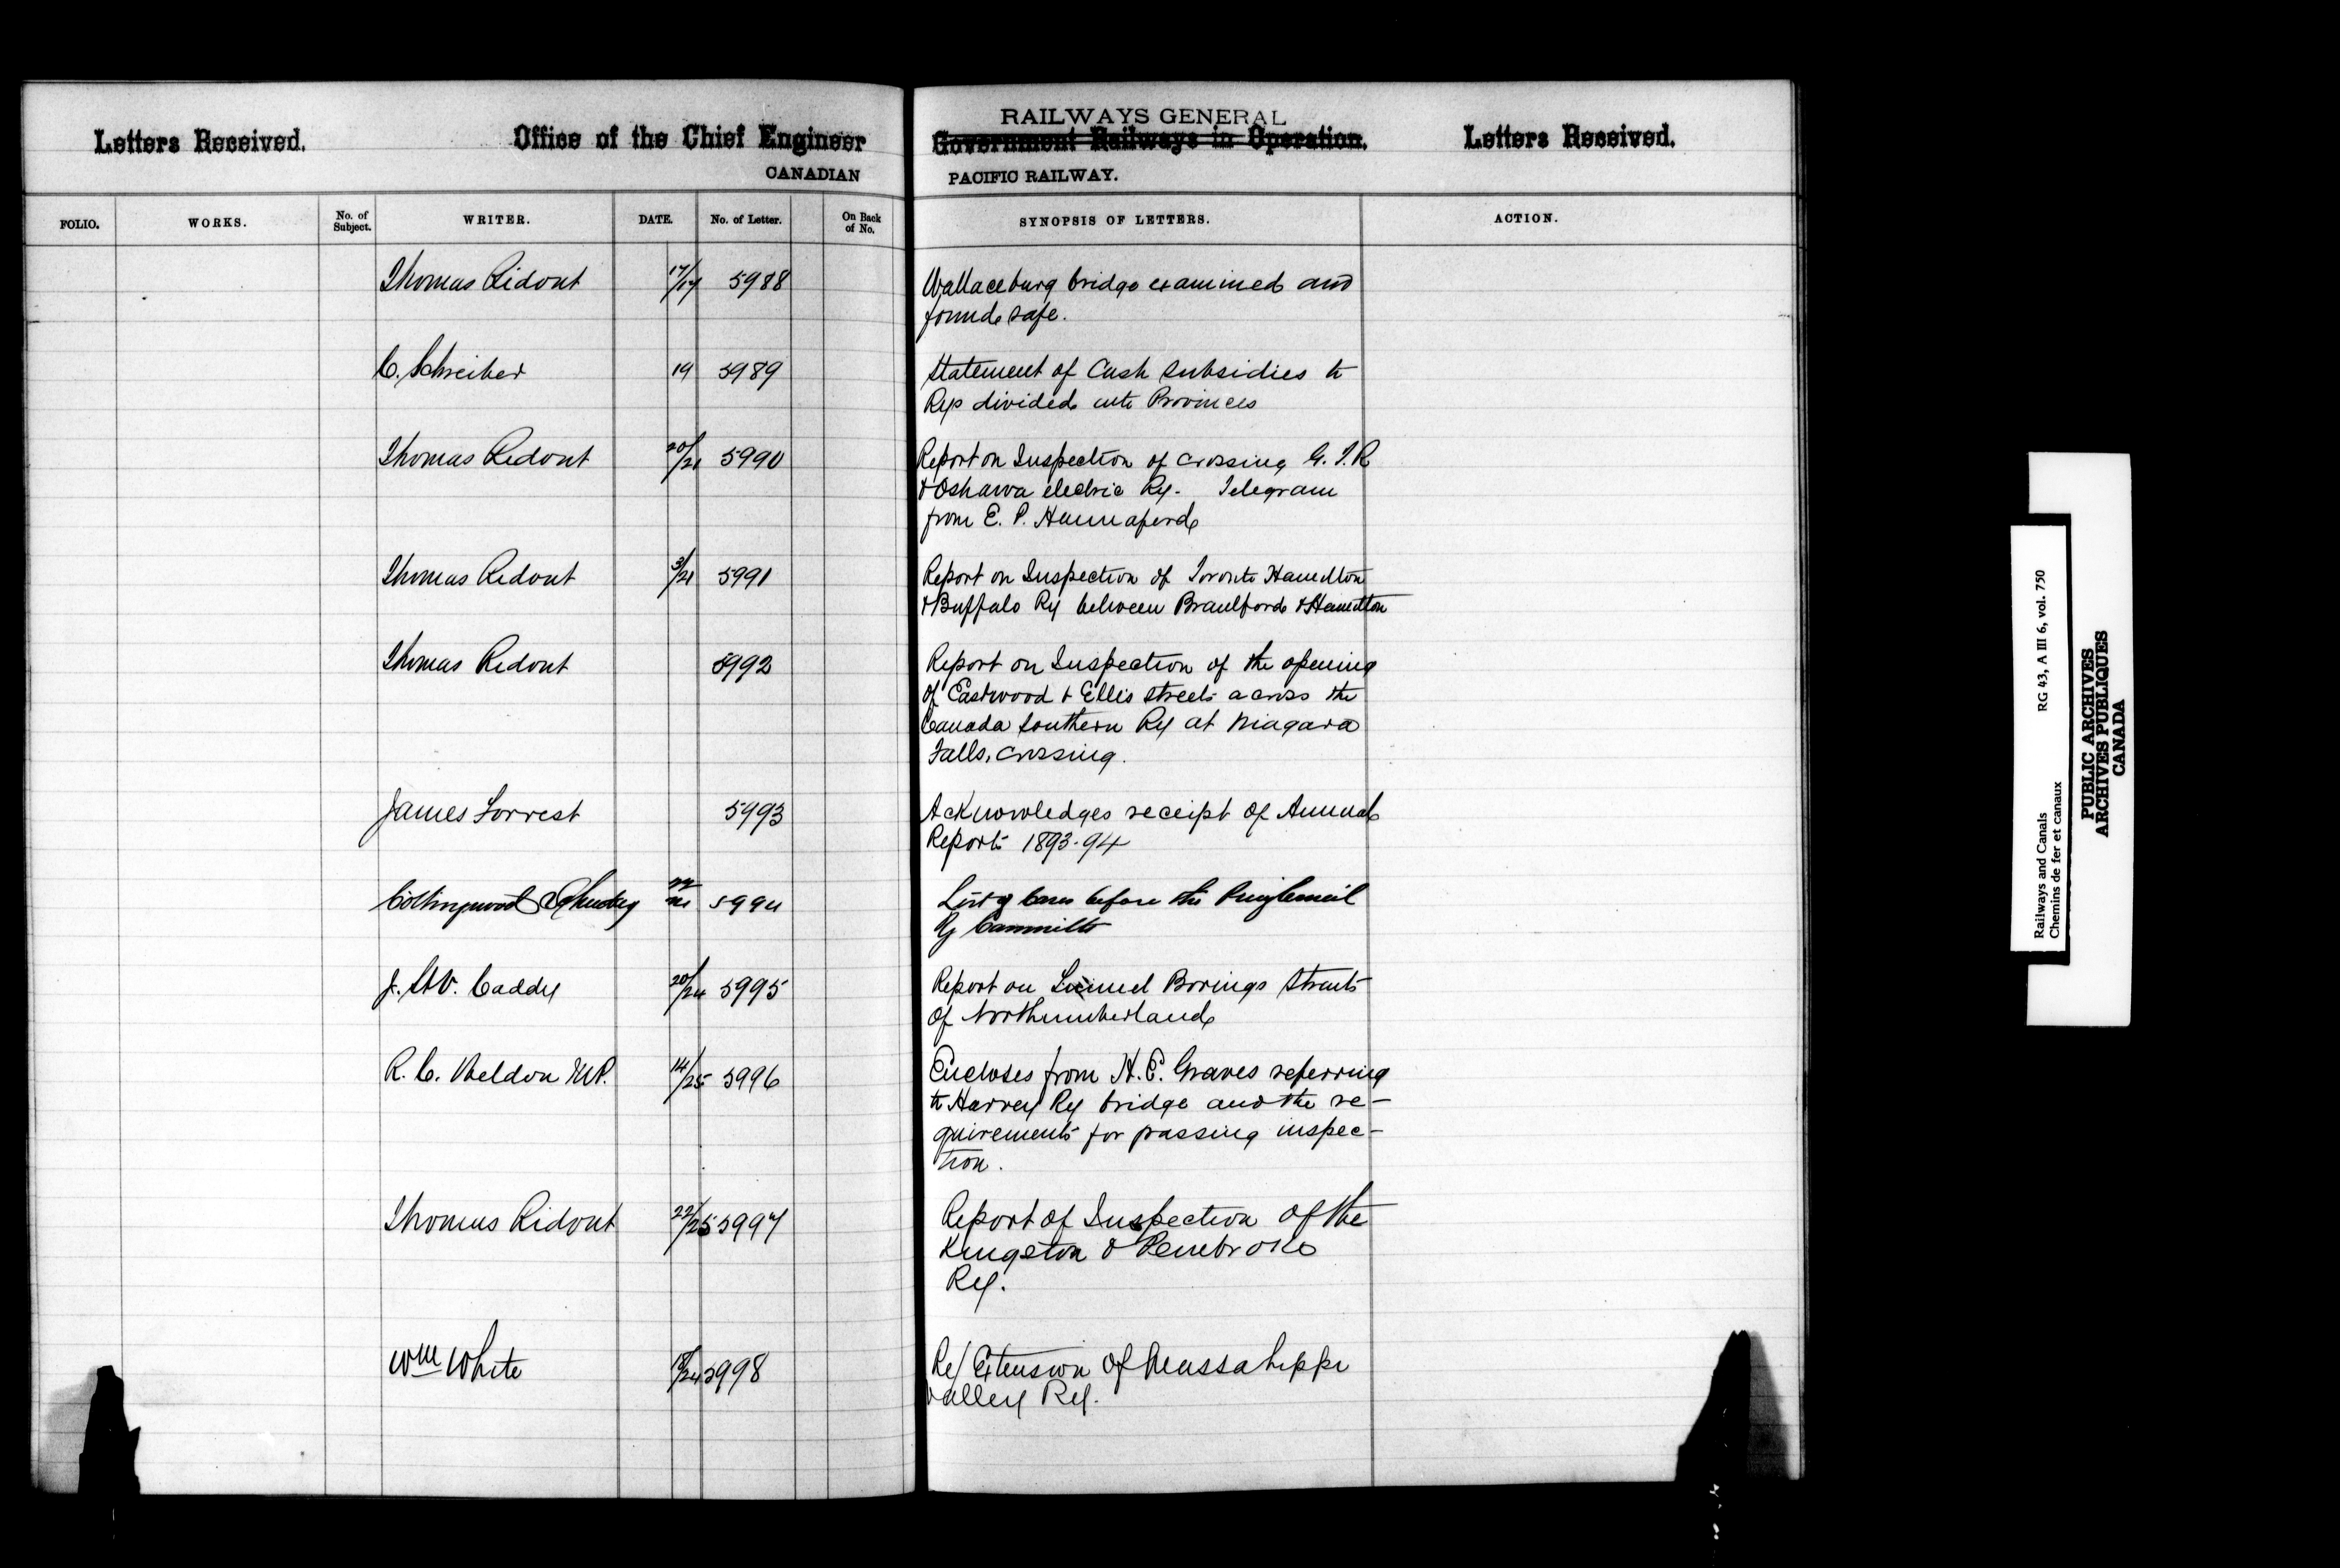 Letters Received.
Office of the Chief Engineer
CANADIAN
RAILWAYS GENERAL
Government Railways in Operation.
PACIFIC RAILWAY.
Letters Received.
FOLIO. WORKS. No. of Subject. WRITER. DATE. No. of Letter. On Back of No. SYNOPSIS OF LETTERS. ACTION.
Thomas Ridout 17/17 5988 Wallaceburg bridge examined and
found safe.
C. Schreiber 19 5989 Statement of Cash subsidies to
Rys divided into Provinces
Thomas Ridout 20/21 5990 Report on Inspection of crossing G. T. R
& Oshawa electric Ry. Telegram
from E. P. Hannaford
Thomas Ridout 3/21 5991 Report on Inspection of Toronto Hamilton
& Buffalo Ry between Brantford & Hamilton
Thomas Ridout 5992 Report on Inspection of the opening
of Eastwood & Ellis streets across the
Canada Southern Ry at Niagara
Falls, crossing.
James Forrest 5993 Acknowledges receipt of Annual
Reports 1893-94
Collingwood 5994 List of Cases before the
Ry Committee
J. St V. Caddy 20/24 5995 Report on Tunnel Borings Straits
of Northumberland
R. C. Weldon M.P. 14/25 5996 Encloses from H. E. Graves referring
to Harvey Ry bridge and the re-
quirements for passing inspec-
tion.
Thomas Ridout 22/25 5997 Report of Inspection of the
Kingston & Pembroke
Ry.
Wm White 18/24 5998 Re/ Extension of Massawippi
Valley Ry.
Railways and Canals RG 43, A III 6, vol. 750
Chemins de fer et canaux
PUBLIC ARCHIVES
ARCHIVES PUBLIQUES
CANADA